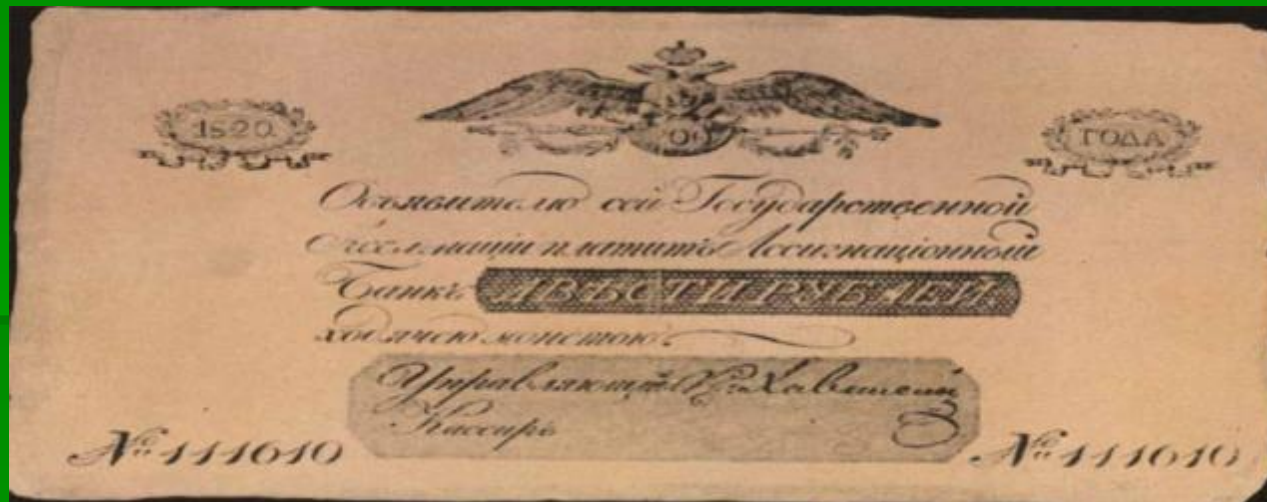 1820. ГОДА
Объявителю сей Государственной
Ассигнаціи платитъ Ассигнаціонный
Банкъ ДВѢСТИ РУБЛЕЙ
ходячею монетою.
Управляющій
Кассиръ
№ 111010 № 111010